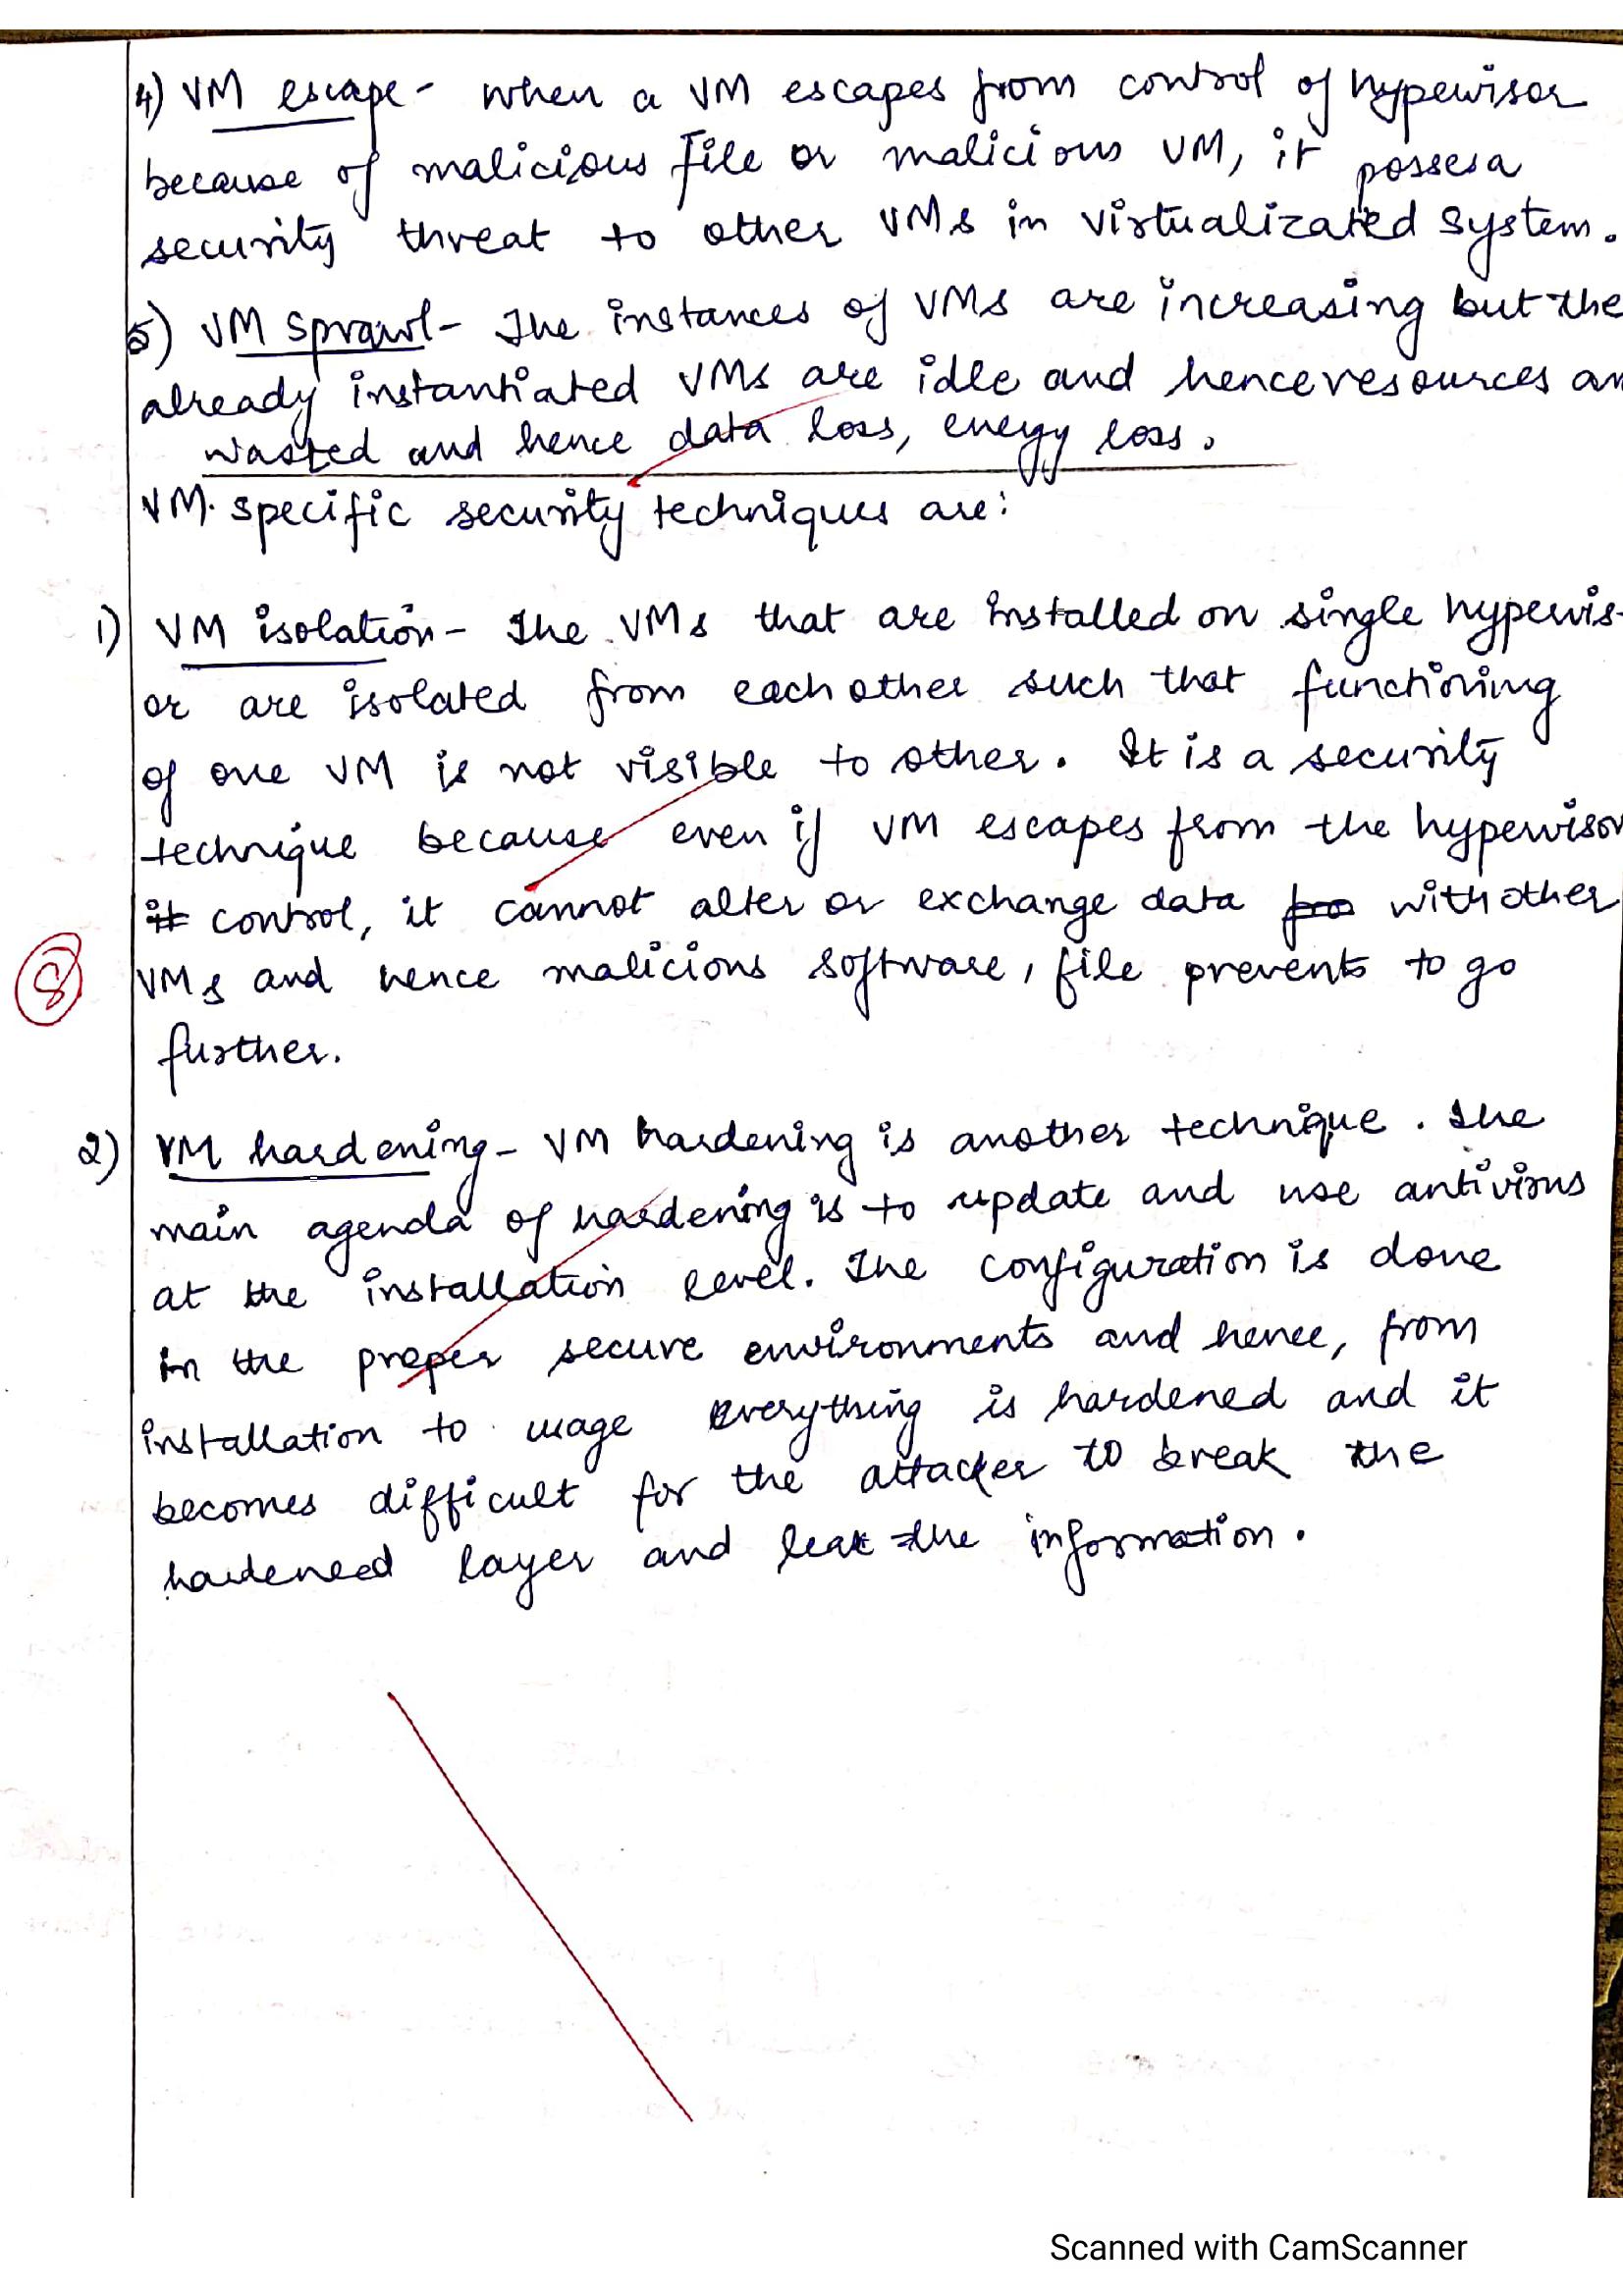 4) VM escape - when a VM escapes from control of hypervisor
because of malicious file or malicious VM, it possesa
security threat to other VMs in virtualizated system.
5) VM sprawl - The instances of VMs are increasing but the
already instantiated VMs are idle and hence resources ar
wasted and hence data loss, energy loss.
VM specific security techniques are:
1) VM isolation - The VMs that are installed on single hypervis-
or are isolated from each other such that functioning
of one VM is not visible to other. It is a security
technique because even if VM escapes from the hypervisor
it control, it cannot alter or exchange data with other
8
VMs and hence malicious software, file prevents to go
further.
2) VM hardening - VM hardening is another technique. The
main agenda of hardening is to update and use antivirus
at the installation level. The configuration is done
in the proper secure environments and hence, from
installation to usage everything is hardened and it
becomes difficult for the attacker to break the
hardeneed layer and leak the information.
Scanned with CamScanner